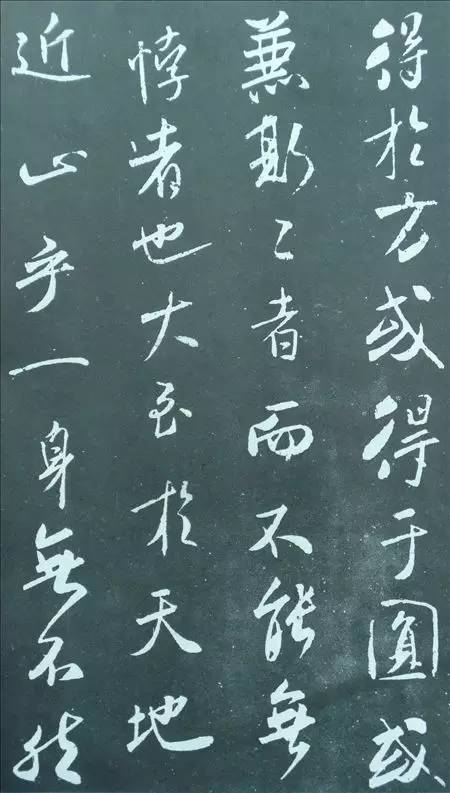 得於方或得于圓或
兼斯二者而不能無
悖者也大至於天地
近止乎一身無不然